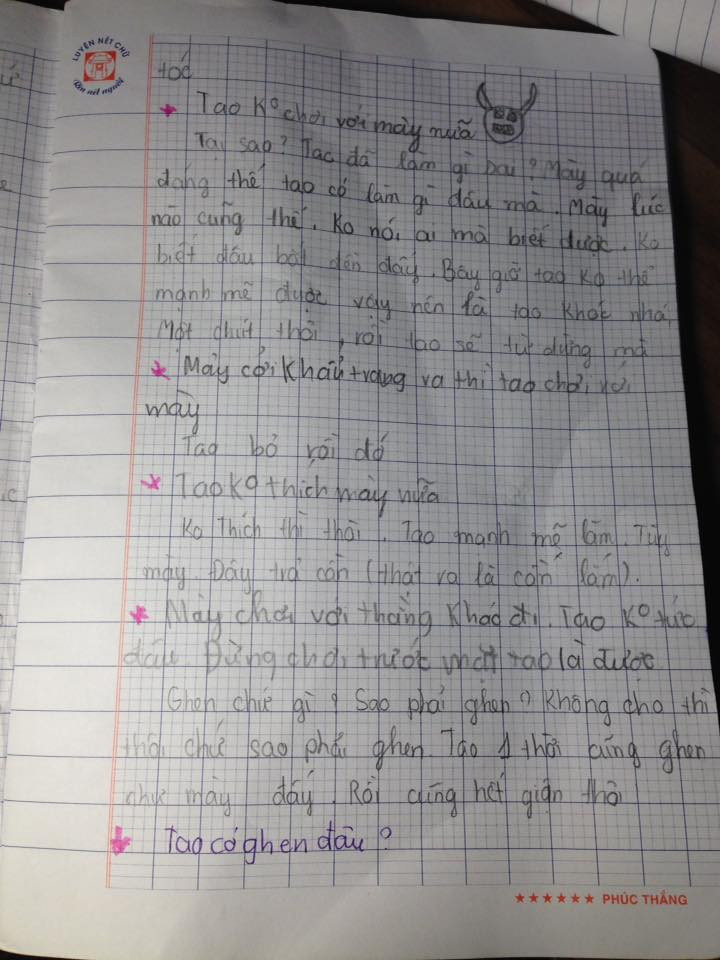 LUYỆN NÉT CHỮ
Rèn nết người
tóc
Tao Ko chơi với mày nữa
Tại sao? Tao đã làm gì sai? Mày quá
đáng thế tao có làm gì đâu mà. Mày lúc
nào cũng thế. Ko nói ai mà biết được. Ko
biết đâu bắt đền đấy. Bây giờ tao ko thể
mạnh mẽ được vậy nên là tao khóc nhá.
Một chút thôi, rồi tao sẽ tự đứng mà
Mày cởi khẩu trang ra thì tao chơi với
mày
Tao bỏ rồi đó
Tao Ko thích mày nữa
Ko thích thì thôi. Tao mạnh mẽ lắm. Tùy
mày. Đây trả cần (thật ra là cần lắm).
Mày chơi với thằng khác đi. Tao Ko tức
đâu. Đừng chơi trước mặt tao là được
Ghen chứ gì? Sao phải ghen? Không cho thì
thôi chứ sao phải ghen. Tao 1 thời cũng ghen
như mày đấy. Rồi cũng hết giận thôi
Tao có ghen đâu?
★★★★★★ PHÚC THẮNG